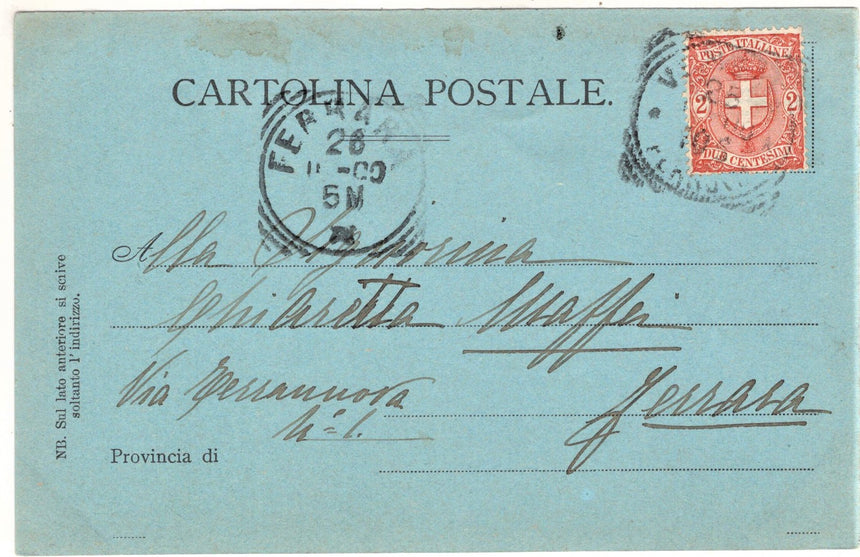 POSTE ITALIANE
2 2
DUE CENTESIMI
CARTOLINA POSTALE.
FERRARA
26
5M
Alla Signorina
Chiaretta Maffei
Via Terranuova
N=1.
Ferrara
Provincia di
NB. Sul lato anteriore si scrive
soltanto l'indirizzo.